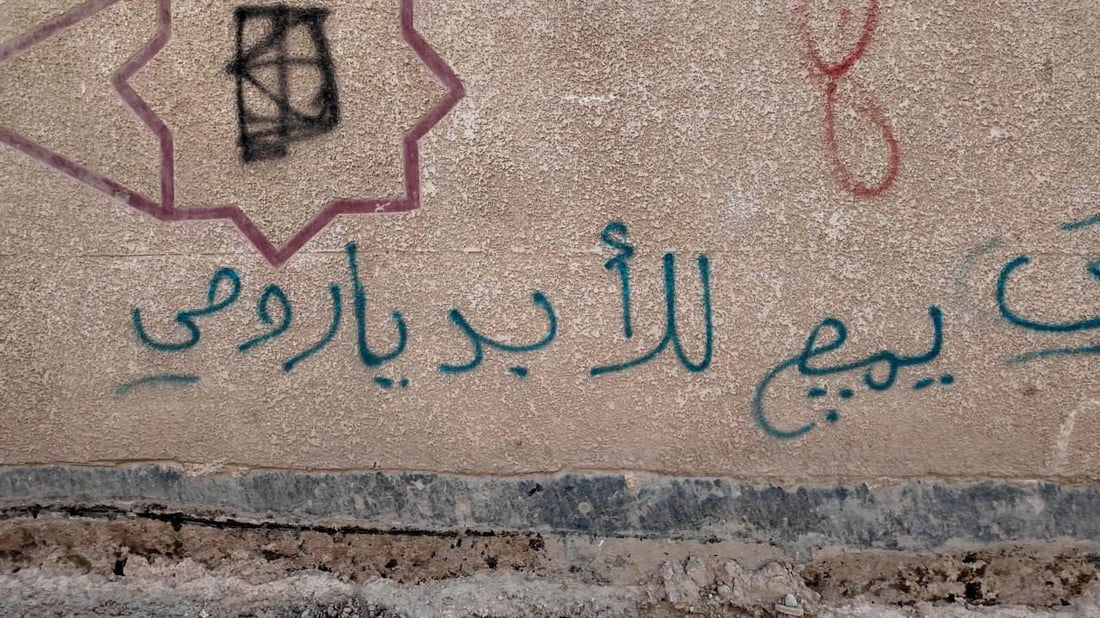 يمچ للأبد ياروحي